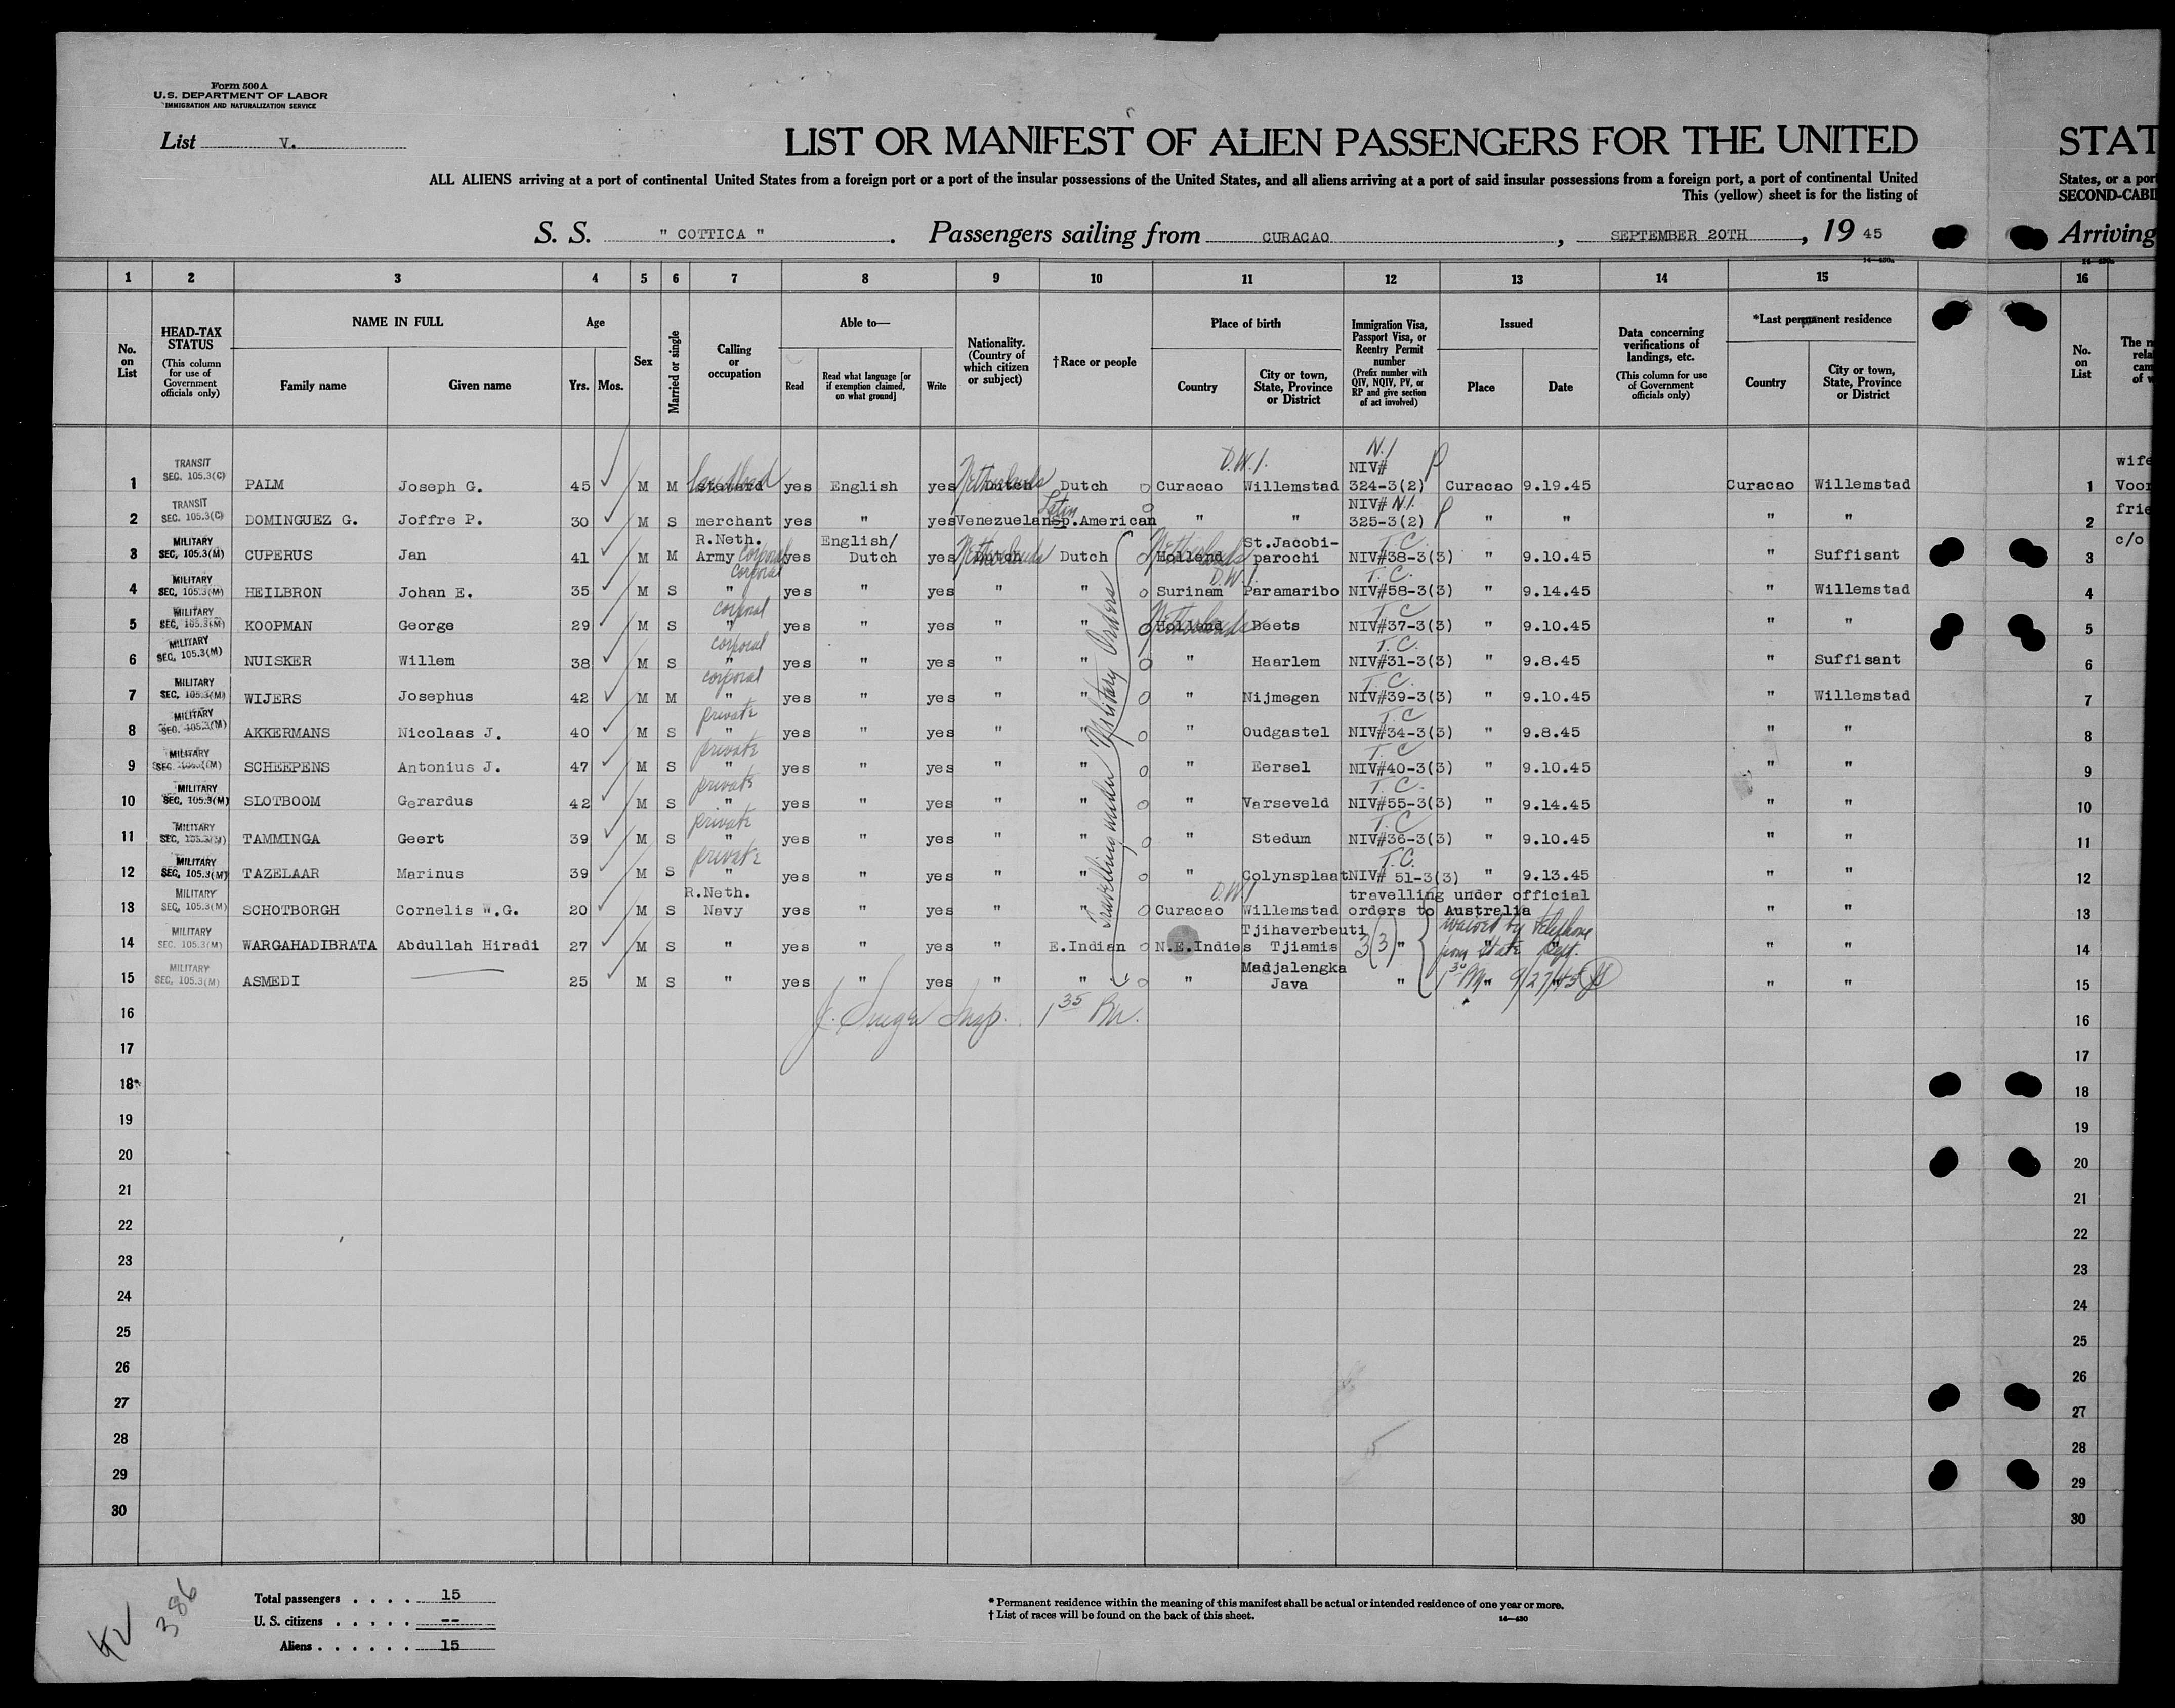 Form 500 A
U.S. DEPARTMENT OF LABOR
IMMIGRATION AND NATURALIZATION SERVICE
List V.
LIST OR MANIFEST OF ALIEN PASSENGERS FOR THE UNITED STAT
ALL ALIENS arriving at a port of continental United States from a foreign port or a port of the insular possessions of the United States, and all aliens arriving at a port of said insular possessions from a foreign port, a port of continental United States, or a por
This (yellow) sheet is for the listing of SECOND-CABI
S. S. " COTTICA " . Passengers sailing from CURACAO , SEPTEMBER 20TH , 19 45 Arriving
1 2 3 4 5 6 7 8 9 10 11 12 13 14 15 16
No. on List
HEAD-TAX STATUS (This column for use of Government officials only)
NAME IN FULL Family name Given name
Age Yrs. Mos.
Sex
Married or single
Calling or occupation
Able to— Read Read what language [or if exemption claimed, on what ground] Write
Nationality. (Country of which citizen or subject)
†Race or people
Place of birth Country City or town, State, Province or District
Immigration Visa, Passport Visa, or Reentry Permit number (Prefix number with QIV, NQIV, PV, or RP and give section of act involved)
Issued Place Date
Data concerning verifications of landings, etc. (This column for use of Government officials only)
*Last permanent residence Country City or town, State, Province or District
No. on List
1 TRANSIT SEC. 105.3(C) PALM Joseph G. 45 M M steward yes English yes Netherlands Dutch Dutch D.W.I. Curacao Willemstad N.I NIV# 324-3(2) P Curacao 9.19.45 Curacao Willemstad 1 wife
2 TRANSIT SEC. 105.3(C) DOMINGUEZ G. Joffre P. 30 M S merchant yes " yes Venezuelan Latin Sp.American " " NIV# N.I. 325-3(2) P " " " " 2 frie
3 MILITARY SEC. 105.3(M) CUPERUS Jan 41 M M R.Neth. Army corporal yes English/ Dutch yes Netherlands Dutch Dutch Netherlands Holland St.Jacobi- parochi T.C. NIV#38-3(3) " 9.10.45 " Suffisant 3 c/o
4 MILITARY SEC. 105.3(M) HEILBRON Johan E. 35 M S corporal " yes " yes " " D.W.I. Surinam Paramaribo T.C. NIV#58-3(3) " 9.14.45 " Willemstad 4
5 MILITARY SEC. 105.3(M) KOOPMAN George 29 M S corporal " yes " yes " " Netherlands Holland Beets T.C. NIV#37-3(3) " 9.10.45 " " 5
6 MILITARY SEC. 105.3(M) NUISKER Willem 38 M S corporal " yes " yes " " " Haarlem T.C. NIV#31-3(3) " 9.8.45 " Suffisant 6
7 MILITARY SEC. 105.3(M) WIJERS Josephus 42 M M corporal " yes " yes " " " Nijmegen T.C. NIV#39-3(3) " 9.10.45 " Willemstad 7
8 MILITARY SEC. 105.3(M) AKKERMANS Nicolaas J. 40 M S private " yes " yes " " " Oudgastel T.C NIV#34-3(3) " 9.8.45 " " 8
9 MILITARY SEC. 105.3(M) SCHEEPENS Antonius J. 47 M S private " yes " yes " " " Eersel T.C NIV#40-3(3) " 9.10.45 " " 9
10 MILITARY SEC. 105.3(M) SLOTBOOM Gerardus 42 M S private " yes " yes " " " Varseveld T.C. NIV#55-3(3) " 9.14.45 " " 10
11 MILITARY SEC. 105.3(M) TAMMINGA Geert 39 M S private " yes " yes " " " Stedum T.C NIV#36-3(3) " 9.10.45 " " 11
12 MILITARY SEC. 105.3(M) TAZELAAR Marinus 39 M S private " yes " yes " " " Colynsplaat T.C. NIV# 51-3(3) " 9.13.45 " " 12
13 MILITARY SEC. 105.3(M) SCHOTBORGH Cornelis W.G. 20 M S R.Neth. Navy yes " yes " " D.W.I Curacao Willemstad travelling under official orders to Australia " " 13
14 MILITARY SEC. 105.3(M) WARGAHADIBRATA Abdullah Hiradi 27 M S " yes " yes " E.Indian N.E.Indies Tjihaverbeuti Tjiamis 3(3) " " " " 14
15 MILITARY SEC. 105.3(M) ASMEDI 25 M S " yes " yes " " " Madjalengka Java " " " " 15
Travelling under Military Orders
waived by telephone
from State Dept.
1 30 PM 9/27/45
Insp. 1 35 Pm.
16 16
17 17
18 18
19 19
20 20
21 21
22 22
23 23
24 24
25 25
26 26
27 27
28 28
29 29
30 30
Total passengers . . . . 15
U. S. citizens . . . . . --
Aliens . . . . . . 15
386
* Permanent residence within the meaning of this manifest shall be actual or intended residence of one year or more.
† List of races will be found on the back of this sheet.